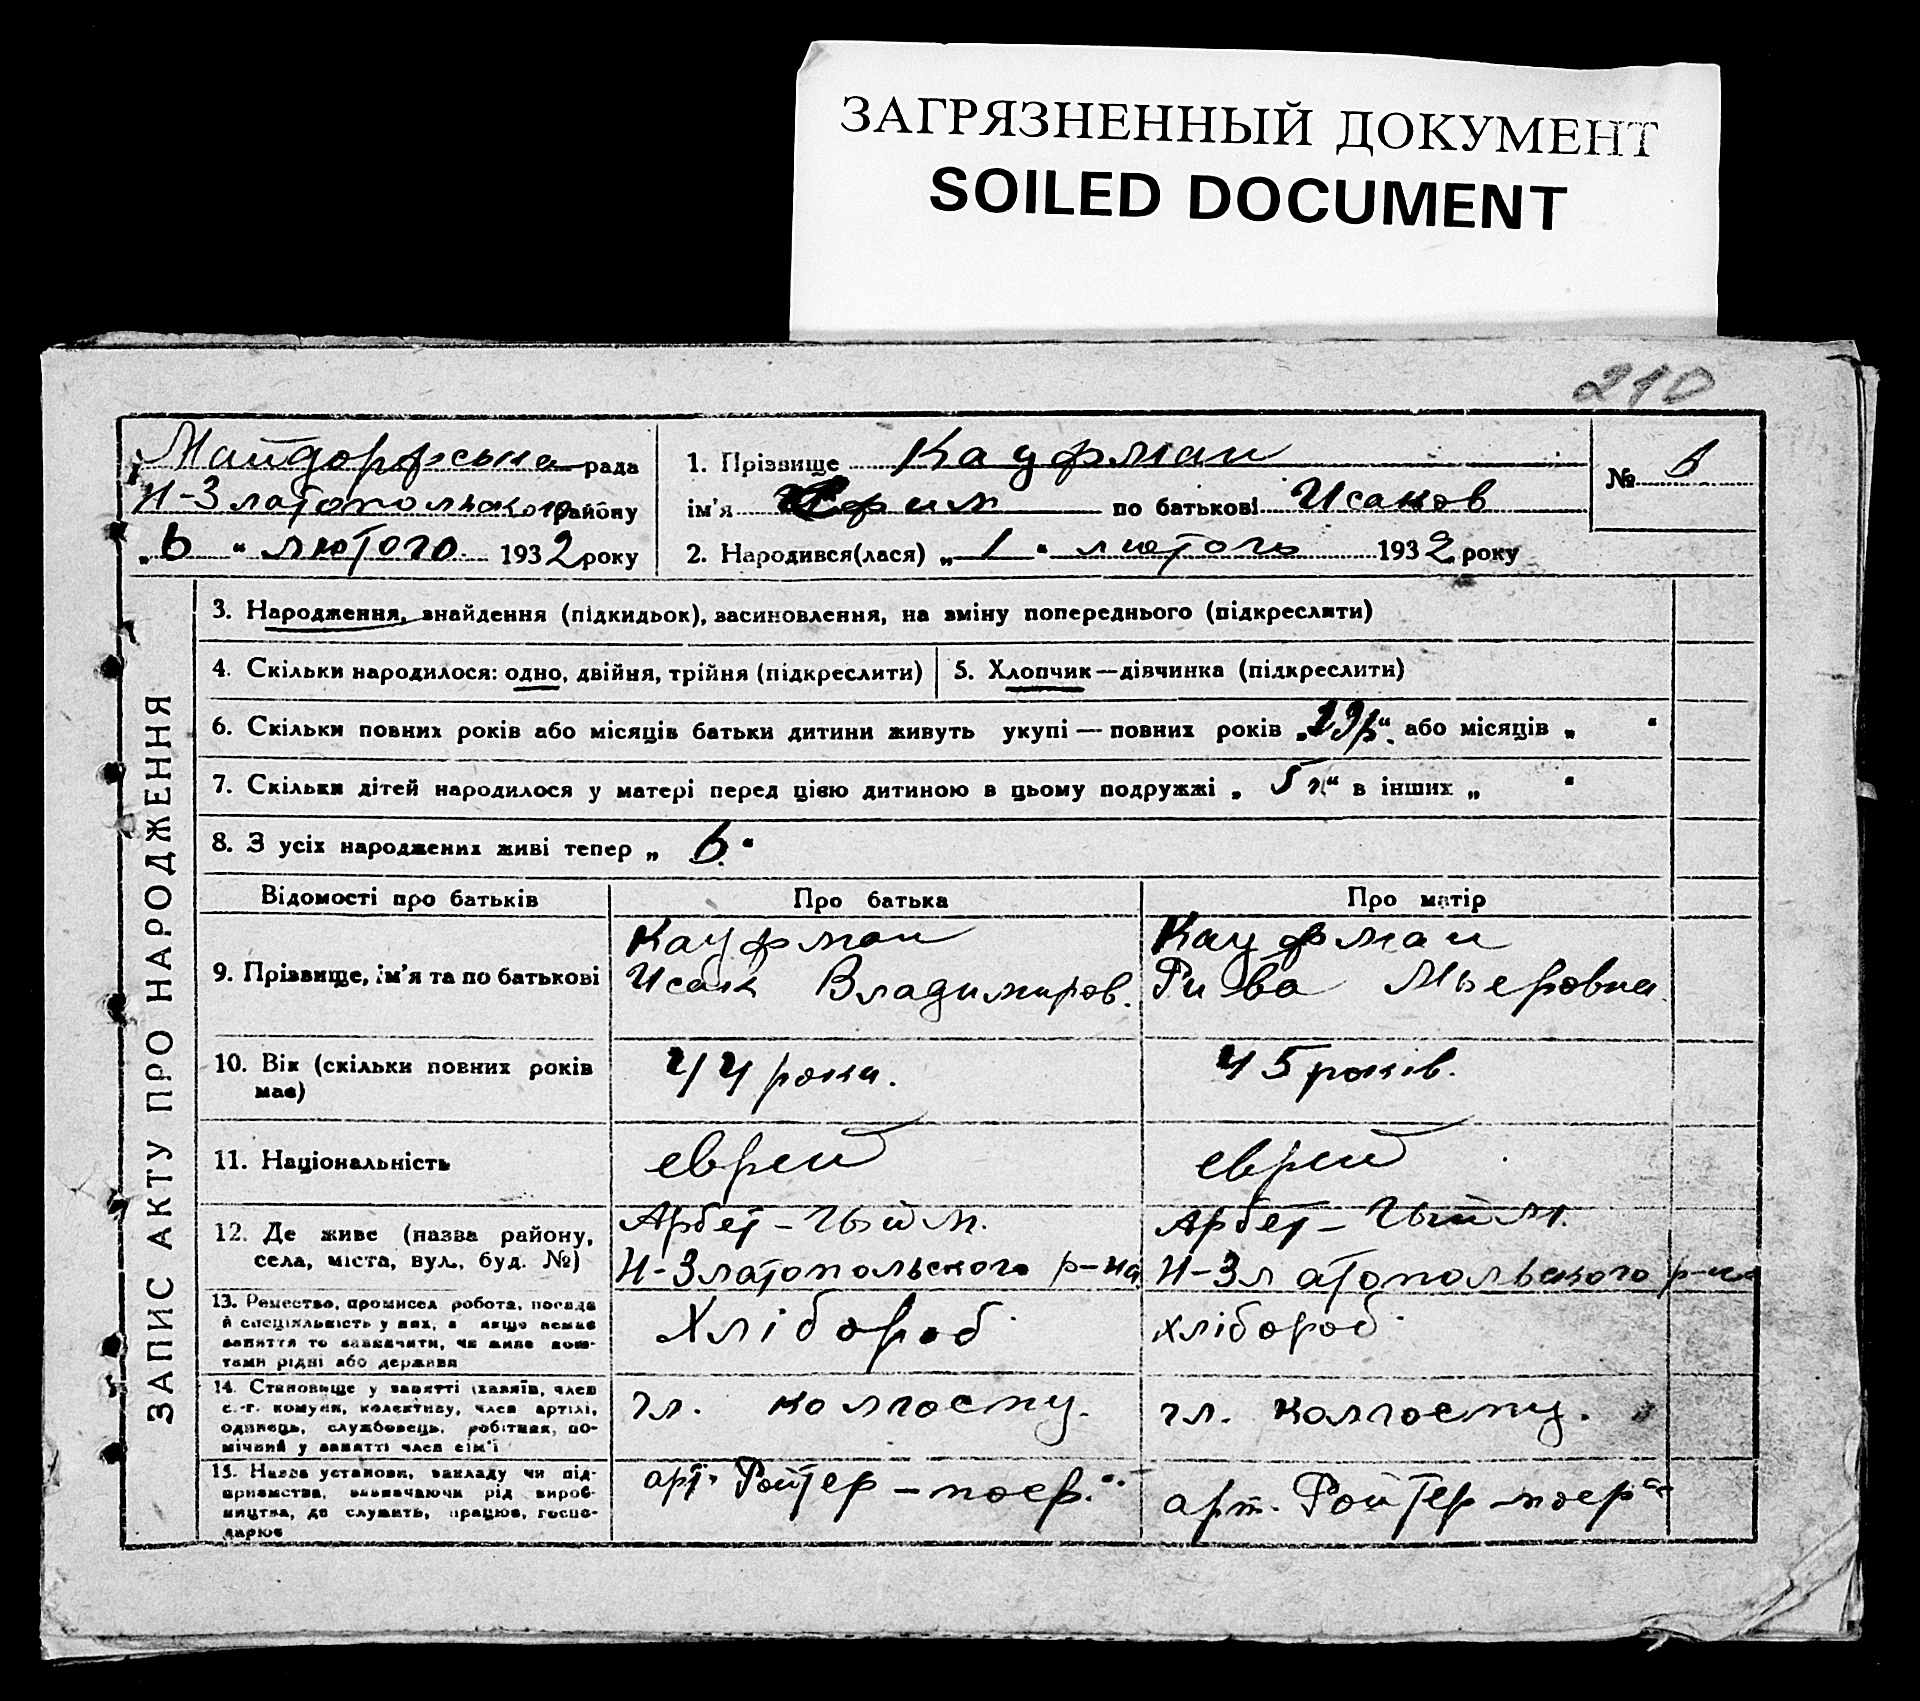 ЗАГРЯЗНЕННЫЙ ДОКУМЕНТ
SOILED DOCUMENT
210
Майдорфська рада
Н-Златопольского району
„6“ лютого 1932 року
1. Прізвище Кауфман
ім'я Ефим по батькові Исаков
2. Народився(лася) „1“ лютого 1932 року
№ 6
ЗАПИС АКТУ ПРО НАРОДЖЕННЯ
3. Народження, знайдення (підкидьок), засиновлення, на зміну попереднього (підкреслити)
4. Скільки народилося: одно, двійня, трійня (підкреслити)
5. Хлопчик—дівчинка (підкреслити)
6. Скільки повних років або місяців батьки дитини живуть укупі — повних років „19р“. або місяців „ “
7. Скільки дітей народилося у матері перед цією дитиною в цьому подружжі „ 5 “ в інших „ “
8. З усіх народжених живі тепер „ 6. “
Відомості про батьків Про батька Про матір
9. Прізвище, ім'я та по батькові
Кауфман
Исаак Владимиров.
Кауфман
Рива Мьеровна
10. Вік (скільки повних років
має)
44 роки.
45 років.
11. Національність
еврей
еврей
12. Де живе (назва району,
села, міста, вул., буд. №)
Арбет-Гыйм.
Н-Златопольского р-на
Арбет-Гыйм.
Н-Златопольского р-на
13. Ремество, промисел робота, посада
й спеціяльність у них, а якщо немає
заняття то зазначити, чи живе кош-
тами рідні або держави
Хлібороб
хлібороб
14. Становище у занятті (хазяїв, член
с.-г. комуни, колективу, член артілі,
одинець, службовець, робітник, по-
мічний у занятті член сім'ї
чл. колгоспу.
чл. колгоспу.
15. Назва установи, закладу чи під-
приємства, зазначаючи рід вироб-
ництва, де служить, працює, госпо-
дарює
арт. Ройтер-поер.
арт. Ройтер-поер